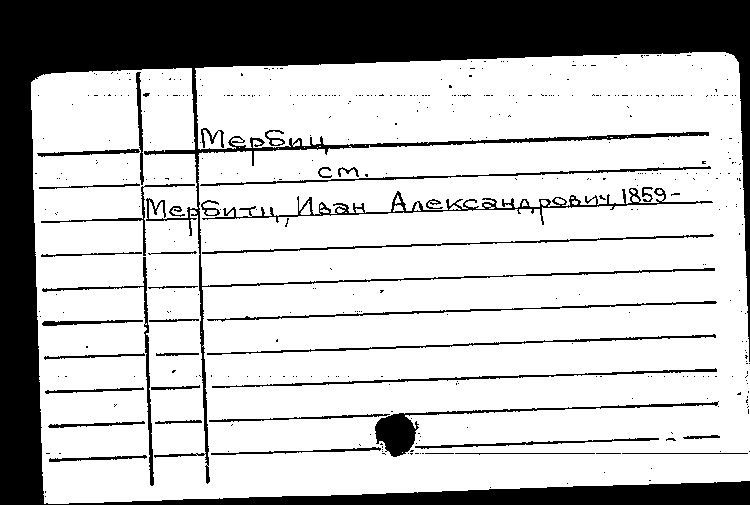 Мербиц
ст.
Мербитц, Иван Александрович, 1859-